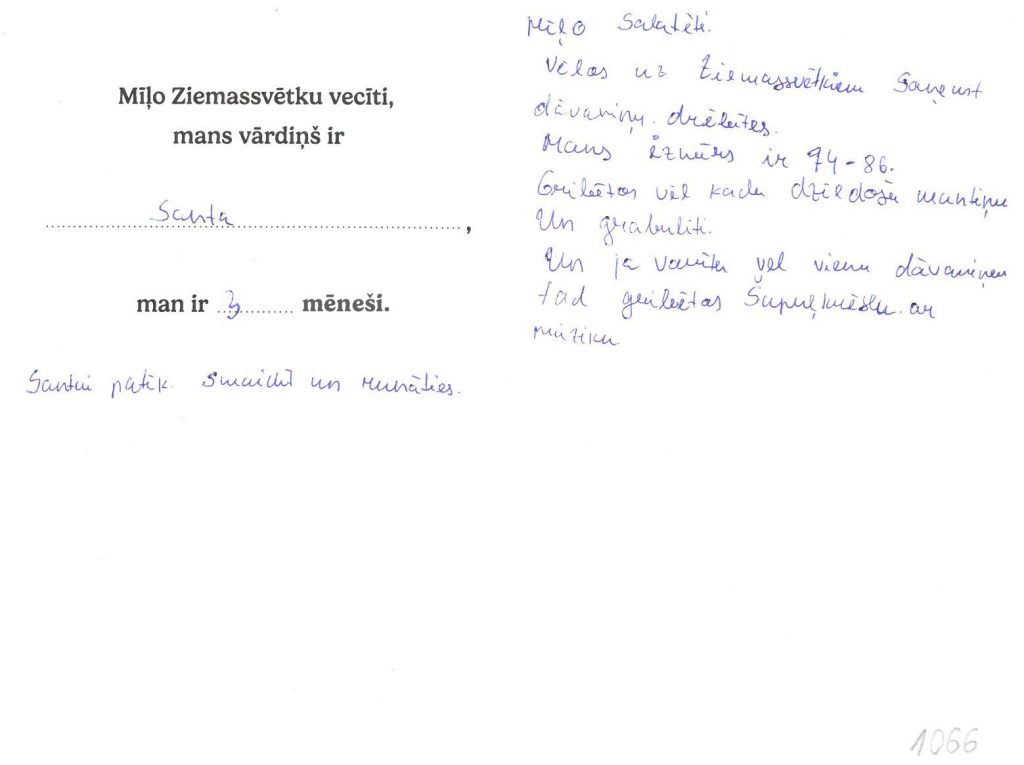 Mīļo Ziemassvētku vecīti,
mans vārdiņš ir
Santa,
man ir 3 mēneši.
Santai patīk smaidīt un runāties.
Mīļo Salatēti.
Vēlos uz Ziemassvētkiem Saņemt
dāvaniņu. drēbītes.
Mans izmērs ir 74-86.
Gribētos vēl kādu dziedošu mantiņu
Un grabulīti.
Un ja varētu vēl vienu dāvaniņu
tad gribētos Šūpuļkrēslu ar
mūziku
1066